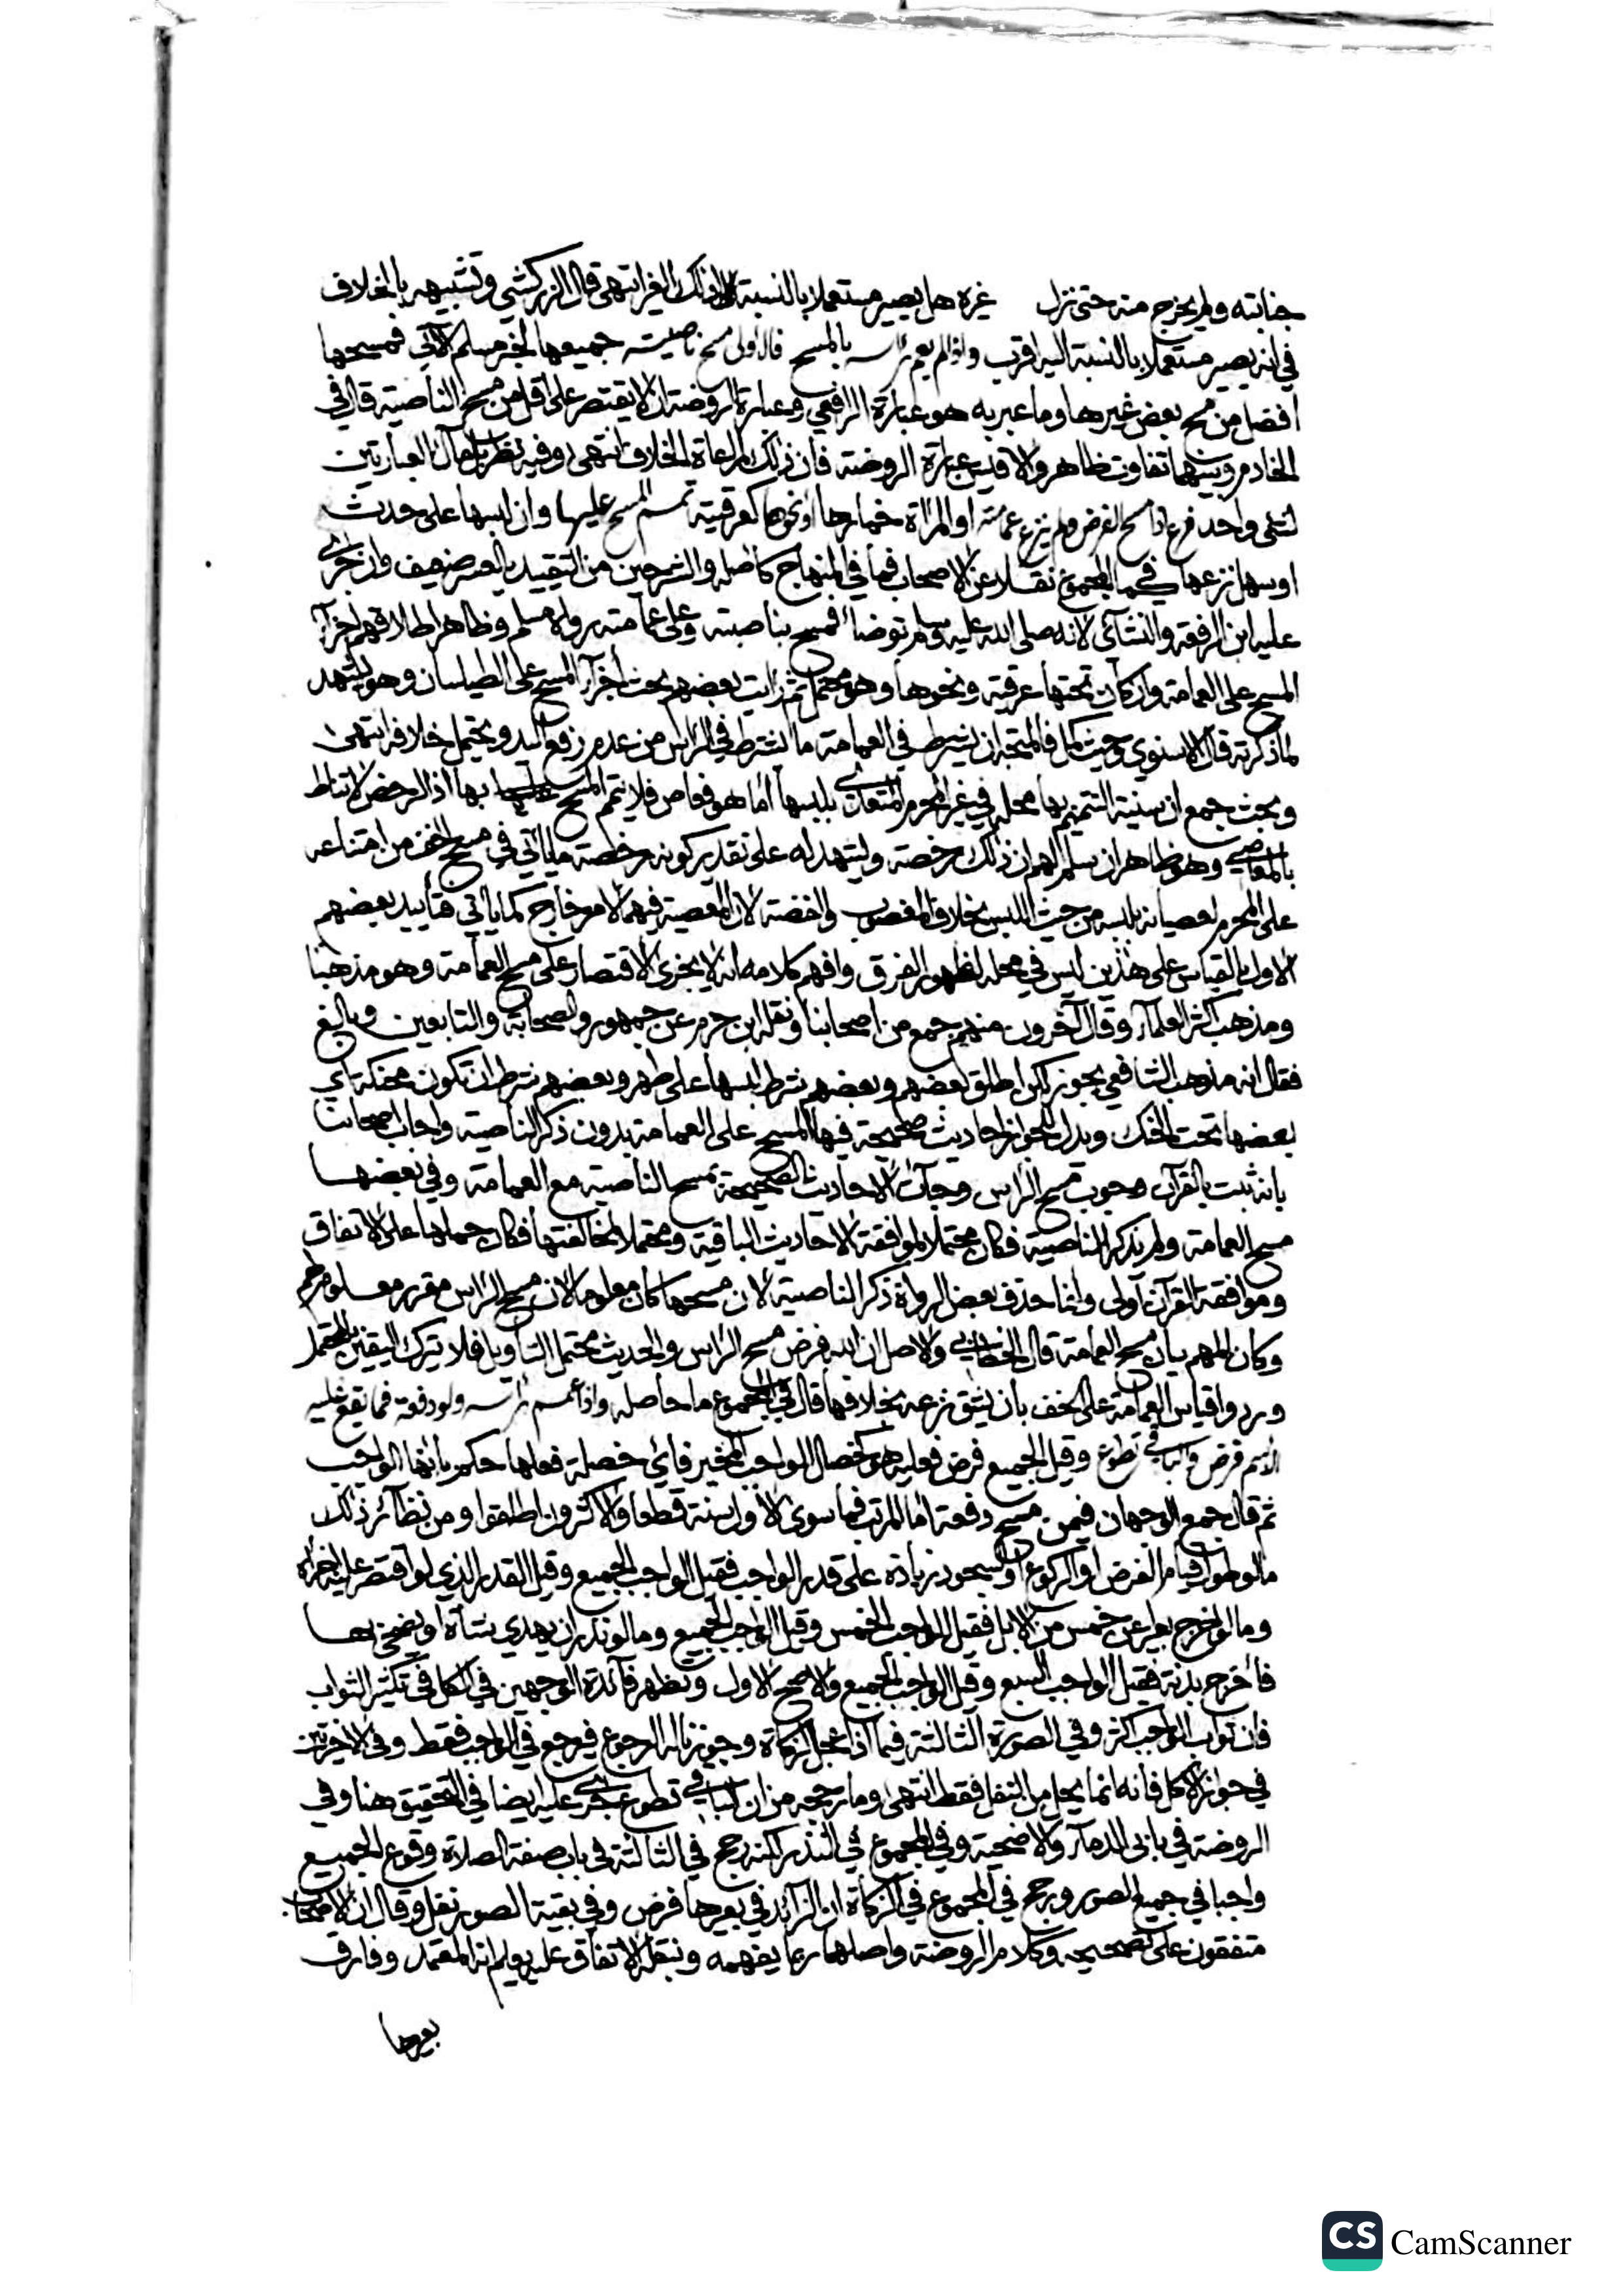 جنابته ولم يخرج منه حتى نزل غيره هل يصير مستعملا بالنسبة الى ذلك الغير انتهى قال الزركشي وتشبيهه بالخلاف
في انه يصير مستعملا بالنسبة اليه اقرب واذا لم يعم راسه بالمسح فالاولى مسح ناصيته جميعها لخبر مسلم الآتي فمسحها
افضل من مسح بعض غيرها وما عبر به هو عبارة الرافعي وعبارة الروضة ان لا يقتصر على اقل من مسح الناصية قال في
الخادم وبينهما تفاوت ظاهر والاقيس عبارة الروضة فان ذلك لمراعاة الخلاف انتهى وفيه نظر بل مآل العبارتين
لشئ واحد فرع اذا مسح الفرض ولم ينزع عمامته او المراة خمارها او نحوها كعرقية تمم المسح عليها وان لبسها على حدث
او سهل نزعها كما في المجموع نقلا عن الاصحاب فما في المنهاج كاصله والشرحين من التقييد بالعسر ضعيف وان جرى
عليه ابن الرفعة والنشائي لانه صلى الله عليه وسلم توضا فمسح بناصيته وعلى عمامته رواه مسلم وظاهر اطلاقهم اجزآء
المسح على العمامة وان كان تحتها عرقية ونحوها وهو محتمل ثم رايت بعضهم بحث اجزآء المسح على الطيلسان وهو يشهد
لما ذكرته قال الاسنوي وحيث كمل فالمتجه ان يشترط في العمامة ما يشترط في الراس من عدم رفع اليد ويحتمل خلافه انتهى
وبحث جمع ان سنية التتميم بها محله في غير المحرم المتعدي بلبسها اما هو فعاص فلا يتمم المسح بها اذ الرخص لا تناط
بالمعاصي وهو ظاهر ان سلم لهم ان ذلك رخصة ويشهد له على تقدير كونه رخصة ما ياتي في مسح الخف من امتناعه
على المحرم لعصيانه بلبسه من حيث اللبس بخلاف المغصوب والفضة لان المعصية فيهما لامر خارج كما ياتي فتاييد بعضهم
الاول بالقياس على هذين ليس في محله لظهور الفرق وافهم كلامه انه لا يجزى الاقتصار على مسح العمامة وهو مذهبنا
ومذهب اكثر العلمآء وقال آخرون منهم جمع من اصحابنا ونقله ابن حزم عن جمهور الصحابة والتابعين وبالغ
فقال انه مذهب الشافعي يجوز لكن اطلق بعضهم وبعضهم شرط لبسها على طهر وبعضهم شرط ان تكون محنكة اي
بعضها تحت الحنك ويدل للجواز احاديث صحيحة فيها المسح على العمامة بدون ذكر الناصية واجاب اصحابنا
بانه ثبت بالقرآن وجوب مسح الراس وجآت الاحاديث الصحيحة بمسح الناصية مع العمامة وفي بعضها
مسح العمامة ولم يذكر الناصية فكان محتملا لموافقة الاحاديث الباقية ومحتملا لمخالفتها فكان حملها على الاتفاق
وموافقة القرآن اولى وانما حذف بعض الرواة ذكر الناصية لان مسحها كان معلوما لان مسح الراس مقرر معلوم
وكان المهم بيان مسح العمامة قال الخطابي والاصل ان الله فرض مسح الراس والحديث محتمل التاويل فلا يترك اليقين بالمحتمل
وردوا قياس العمامة على الخف بان يشق نزعه بخلافها قال في المجموع ما حاصله واذا عمم راسه ولو دفعة فما يقع عليه
الاسم فرض والباقي تطوع وقيل الجميع فرض فعليه هو كخصال الواجب المخير فاي خصلة فعلها حكم بانها الواجب
ثم قال جمع الوجهان فيمن مسح دفعة اما المرتب فما سوى الاول سنة قطعا والاكثرون اطلقوا ومن نظائر ذلك
ما لو طول قيام الفرض او الركوع او السجود زيادة على قدر الواجب فقيل الواجب الجميع وقيل القدر الذي لو اقتصر عليه اجزاه
وما لو اخرج بعيرا عن خمس من الابل فقيل الواجب الخمس وقيل الواجب الجميع وما لو نذر ان يهدي شاة او يضحي بها
فاخرج بدنة فقيل الواجب السبع وقيل الواجب الجميع والاصح الاول وتظهر فآئدة الوجهين في الكل في تكثير الثواب
فان ثواب الواجب اكثر وفي الصورة الثالثة فيما اذا عجل الزكاة وجوزنا له الرجوع فيرجع في الواجب فقط وفي الاخيرتين
في جواز الاكل فانه انما يحل من النفل فقط انتهى وما رجحه من ان الباقي تطوع جرى عليه ايضا في التحقيق هنا وفي
الروضة في بابي الدمآء والاضحية وفي المجموع في النذر لكنه رجح في الثالثة في باب صفة الصلاة وقوع الجميع
واجبا في جميع الصور ورجح في المجموع في الزكاة ان الزآئد في بعيرها فرض وفي بقية الصور نفل وقال ان الاصحاب
متفقون على تصحيحه وكلام الروضة واصلها ربما يفهمه وبنقله الاتفاق عليه يعلم انه المعتمد وفارق
بعيرها
CS CamScanner